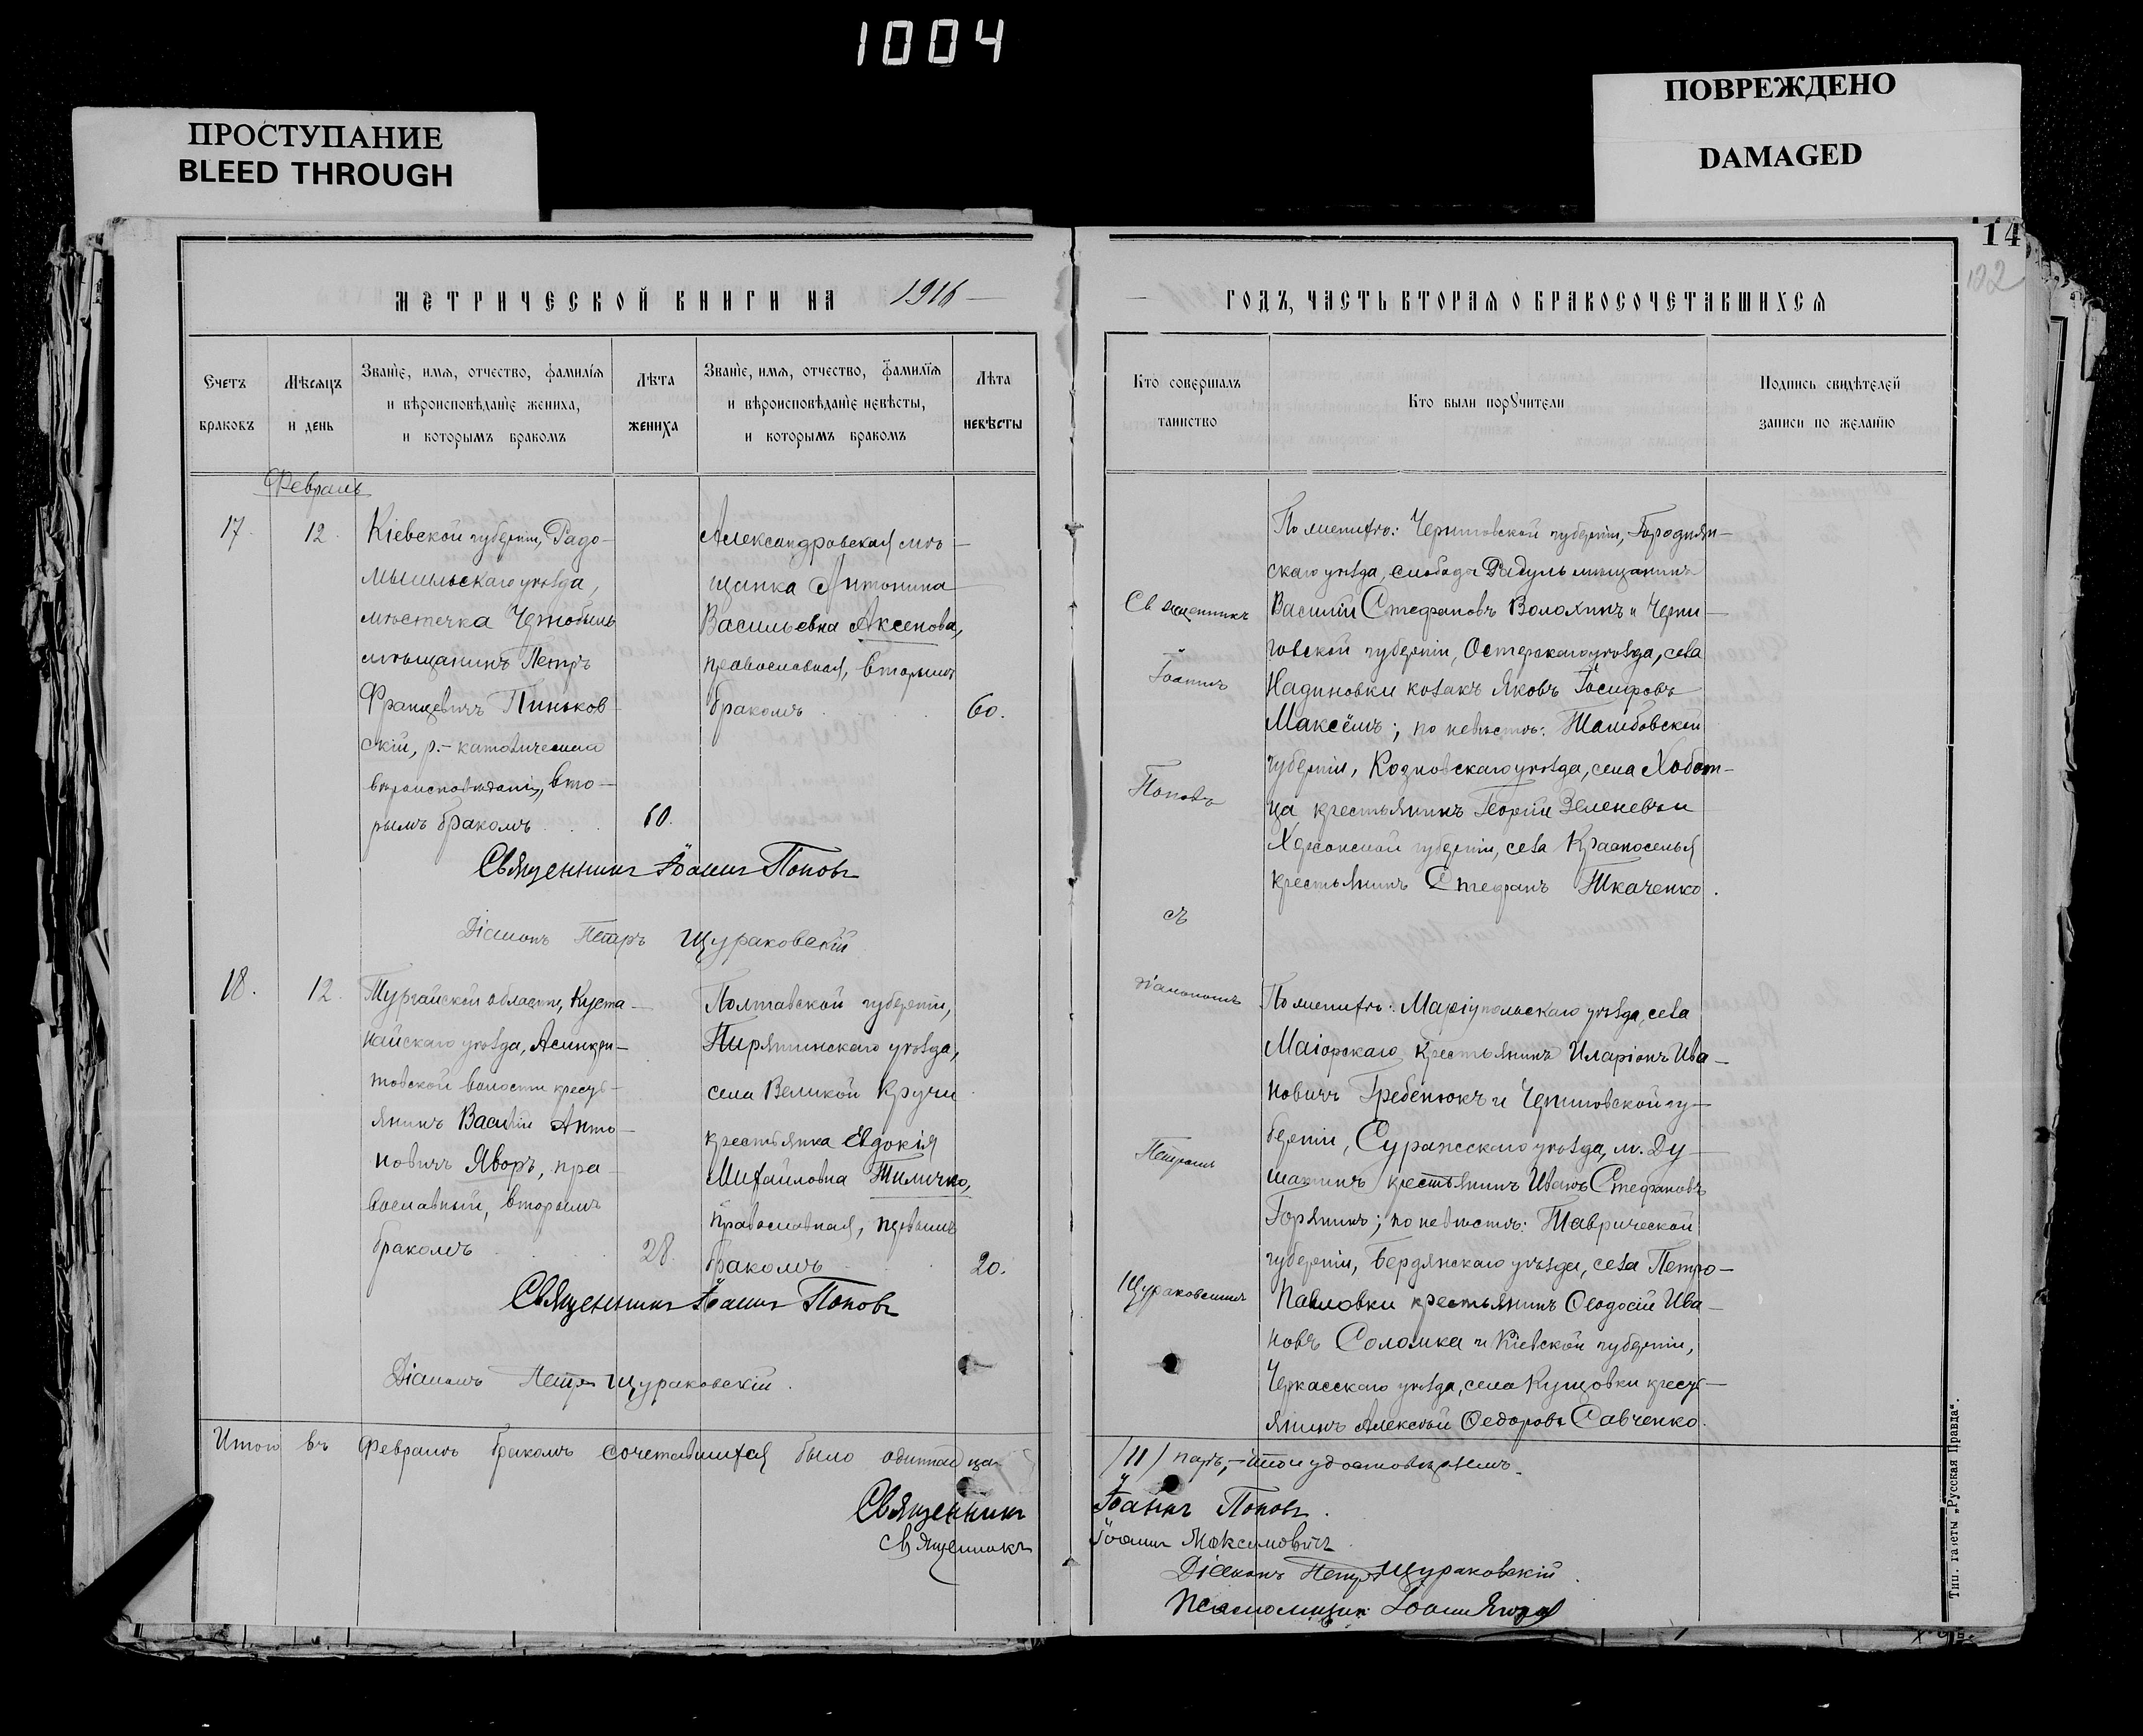 1004
ПРОСТУПАНИЕ
BLEED THROUGH
ПОВРЕЖДЕНО
DAMAGED
14
122
МЕТРИЧЕСКОЙ КНИГИ НА 1916
Счетъ браковъ
Мѣсяцъ и день
Званіе, имя, отчество, фамилія
и вѣроисповѣданіе жениха,
и которымъ бракомъ
Лѣта
жениха
Званіе, имя, отчество, фамилія
и вѣроисповѣданіе невѣсты,
и которымъ бракомъ
Лѣта
невѣсты
Февраль
17.
12.
Кіевской губерніи, Радо-
мысльскаго уѣзда,
мѣстечка Чернобыль
мѣщанинъ Петръ
Францевичъ Пиньков-
скій, р.-католическаго
вѣроисповѣданія, вто-
рымъ бракомъ
60.
Александровская мѣ-
щанка Антонина
Васильевна Аксенова,
православная, вторымъ
бракомъ
60.
Священникъ Іоаннъ Поповъ
Діаконъ Петръ Щураковскій
18.
12.
Тургайской области, Куста-
найскаго уѣзда, Асинкри-
товской волости кресть-
янинъ Василій Анто-
новичъ Яворъ, пра-
вославный, вторымъ
бракомъ
28.
Полтавской губерніи,
Пирятинскаго уѣзда,
села Великой Кручи
крестьянка Евдокія
Михайловна Тиличко,
православная, первымъ
бракомъ
20.
Священникъ Іоаннъ Поповъ
Діаконъ Петръ Щураковскій.
Итого въ Февралѣ бракомъ сочетавшихся было одиннадца-
Священникъ
Священникъ
ГОДЪ, ЧАСТЬ ВТОРАЯ О БРАКОСОЧЕТАВШИХСЯ
Кто совершалъ
таинство
Кто были поручители
Подпись свидѣтелей
записи по желанію
Священникъ
Іоаннъ
Поповъ
съ
діакономъ
Петромъ
Щураковскимъ
По женихѣ: Черниговской губерніи, Городнян-
скаго уѣзда, слобода Радуль мѣщанинъ
Василій Стефановъ Волохинъ и Черни-
говской губерніи, Остерскаго уѣзда, села
Надиновки козакъ Яковъ Іосифовъ
Максёмъ; по невѣстѣ: Тамбовской
губерніи, Козловскаго уѣзда, села Хобот-
ца крестьянинъ Георгій Зеленевъ и
Херсонской губерніи, села Красноселья
крестьянинъ Стефанъ Ткаченко.
По женихѣ: Маріупольскаго уѣзда, села
Маіорскаго крестьянинъ Иларіонъ Ива-
новичъ Гребенюкъ и Черниговской гу-
берніи, Суражскаго уѣзда, м. Ду-
шатинъ крестьянинъ Иванъ Стефановъ
Горянинъ; по невѣстѣ: Таврической
губерніи, Бердянскаго уѣзда, села Петро-
павловки крестьянинъ Ѳеодосій Ива-
новъ Соломка и Кіевской губерніи,
Черкасскаго уѣзда, села Куцовки кресть-
янинъ Алексѣй Ѳедоровъ Савченко.
/11/ паръ, - что и удостовѣряемъ.
Іоаннъ Поповъ.
Іоаннъ Максимовичъ
Діаконъ Петръ Щураковскій.
Псаломщикъ Іоаннъ
Тип. газеты „Русская Правда“.